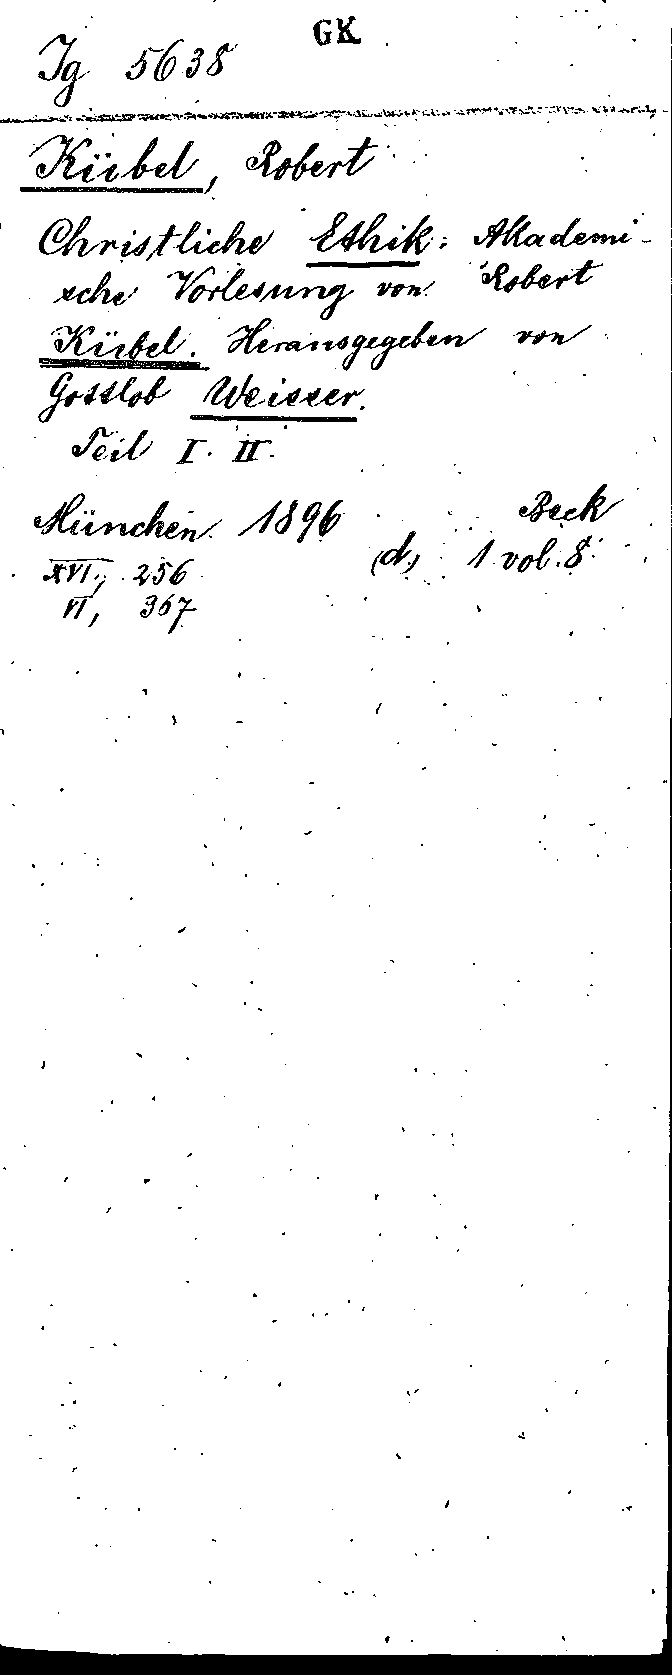 GK
Ig 5638
Kübel, Robert
Christliche Ethik: Akademi-
sche Vorlesung von Robert
Kübel. Herausgegeben von
Gottlob Weisser.
Teil I. II.
München 1896 Beck
XVI, 256 (d.) 1 vol. 8°
VI, 367